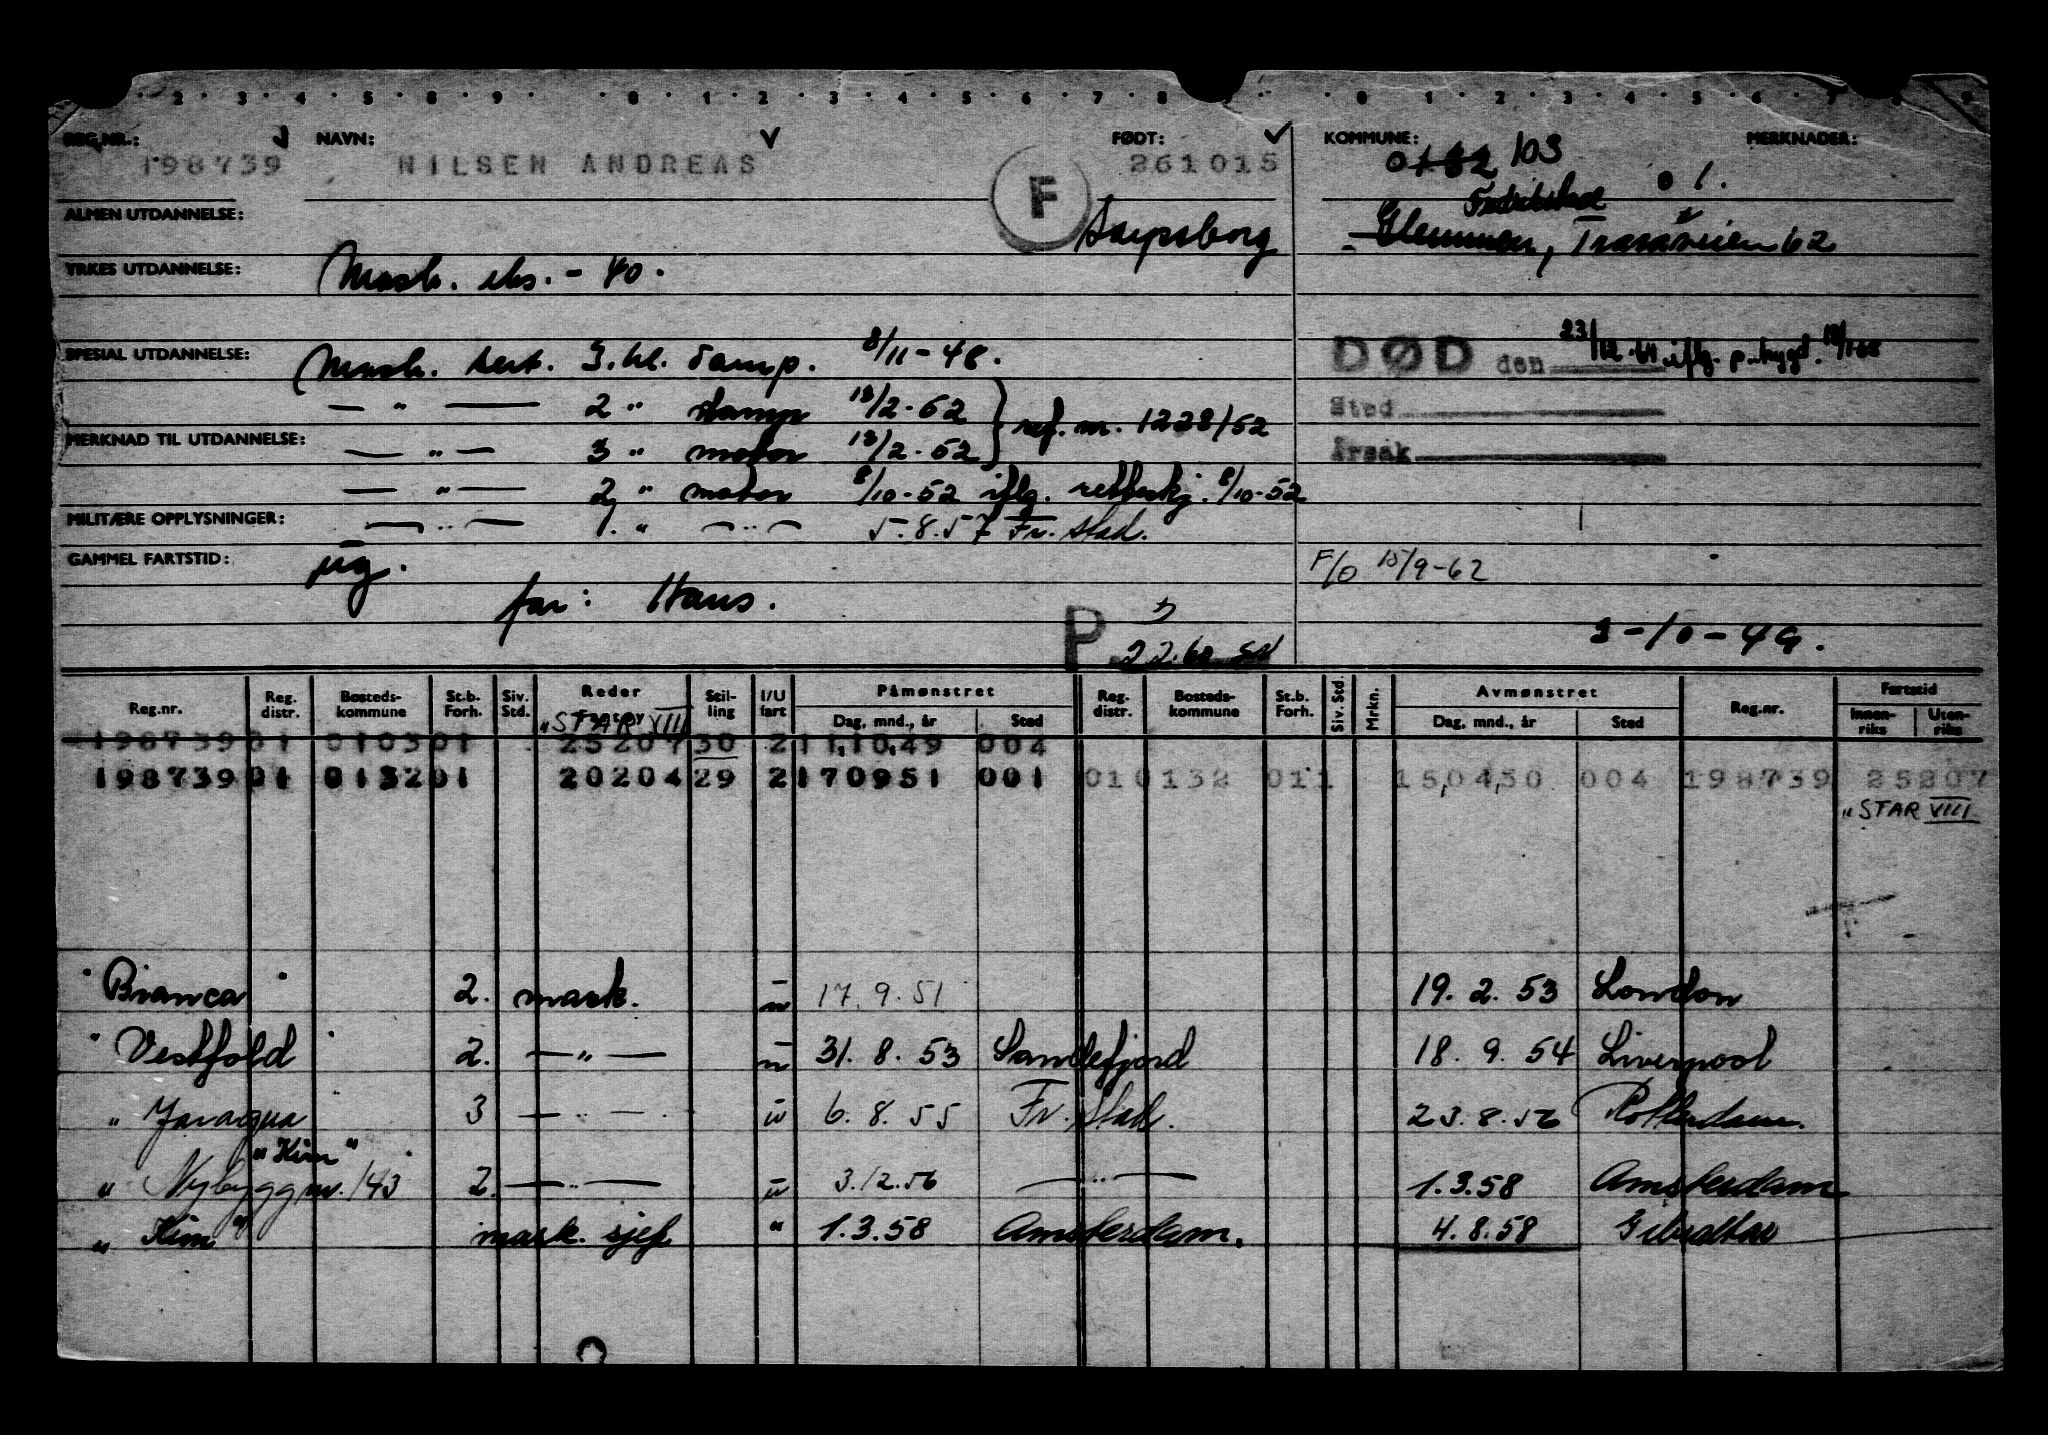 2 3 4 5 6 7 8 9 0 1 2 3 4 5 6 7 8 0 1 2 3 4 5 6 7 8 9
REG.NR.: NAVN: FØDT: KOMMUNE: MERKNADER:
198739 NILSEN ANDREAS F 261015 0132 103 01.
ALMEN UTDANNELSE: Sarpsborg Fredrikstad
Glemmen, Traraveien 62
YRKES UTDANNELSE: Mask. eks. - 40.
SPESIAL UTDANNELSE: Mask. sert. 3. kl. damp. 8/11-48. DØD den 23/12-64 iflg. p. bygd. 18/1-65
— " — 2 " damp 18/2-52 Sted
ref. nr. 1228/52
MERKNAD TIL UTDANNELSE: — " — 3 " motor 18/2-52 Årsak
— " — 2 " motor 8/10-52 iflg. rettskj. 8/10-52
MILITÆRE OPPLYSNINGER: — " — 1. " — " — 5.8.57 Fr.stad.
GAMMEL FARTSTID: F/O 15/9-62
far: Hans.
P 2 2.60 3-10-49.
Reg.nr. Reg. distr. Bosteds-kommune St.b. Forh. Siv. Std. Reder Fartøy Stil-ling I/U fart Påmønstret Dag, mnd., år Sted Reg. distr. Bosteds-kommune St.b. Forh. Siv. Std. Mrkn. Avmønstret Dag, mnd., år Sted Reg.nr. Fartstid Innen-riks Uten-riks
"STAR VIII
198739 01 0103 01 25207 30 2 11,10,49 004
198739 01 0132 01 20204 29 2 170951 001 01 0132 01 1 15,04,50 004 198739 25207
"STAR VIII
"Bianca" 2. mask. u 17.9.51 19.2.53 London
"Vestfold" 2. — " — u 31.8.53 Sandefjord 18.9.54 Liverpool
" Jaragua 3 — " — u 6.8.55 Fr.stad. 23.8.56 Rotterdam.
"Kim"
" Nybygg nr. 143 2. — " — u 3.12.56 — " — 1.3.58 Amsterdam
" Kim" mask. sjef " 1.3.58 Amsterdam. 4.8.58 Gibraltar